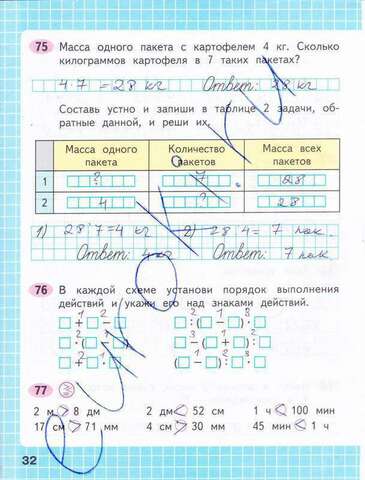 75 Масса одного пакета с картофелем 4 кг. Сколько
килограммов картофеля в 7 таких пакетах?
4·7=28 кг Ответ: 28 кг
Составь устно и запиши в таблице 2 задачи, об-
ратные данной, и реши их.
Масса одного пакета Количество пакетов Масса всех пакетов
1 ? 7 28
2 4 ? 28
1) 28:7=4 кг 2) 28:4=7 пак.
Ответ: 4 кг Ответ: 7 пак.
76 В каждой схеме установи порядок выполнения
действий и укажи его над знаками действий.
77
2 м > 8 дм 2 дм < 52 см 1 ч < 100 мин
17 см > 71 мм 4 см > 30 мм 45 мин < 1 ч
32